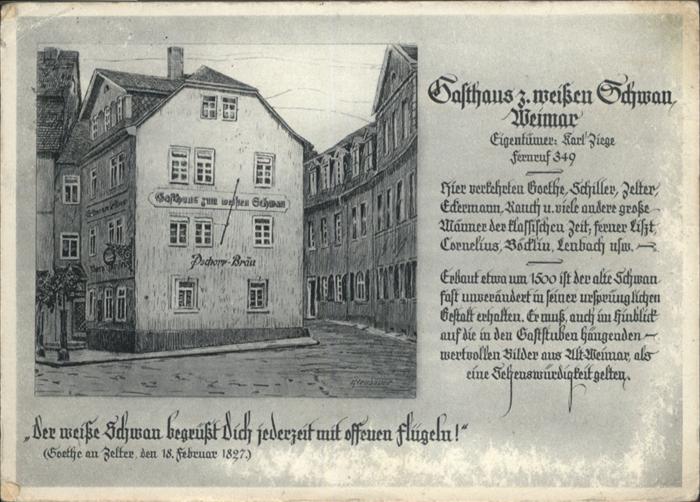 Gasthaus z. weißen Schwan
Weimar
Eigentümer: Karl Ziege
Fernruf 349
Hier verkehrten Goethe, Schiller, Zelter,
Eckermann, Rauch u. viele andere große
Männer der klassischen Zeit; ferner Liszt,
Cornelius, Böcklin, Lenbach usw.
Erbaut etwa um 1500 ist der alte Schwan
fast unverändert in seiner ursprünglichen
Gestalt erhalten. Er muß, auch im Hinblick
auf die in den Gaststuben hängenden
wertvollen Bilder aus Alt-Weimar, als
eine Sehenswürdigkeit gelten.
Gasthaus zum weißen Schwan
Pschorr-Bräu
„Der weiße Schwan begrüßt Dich jederzeit mit offenen Flügeln!“
(Goethe an Zelter, den 18. Februar 1827.)